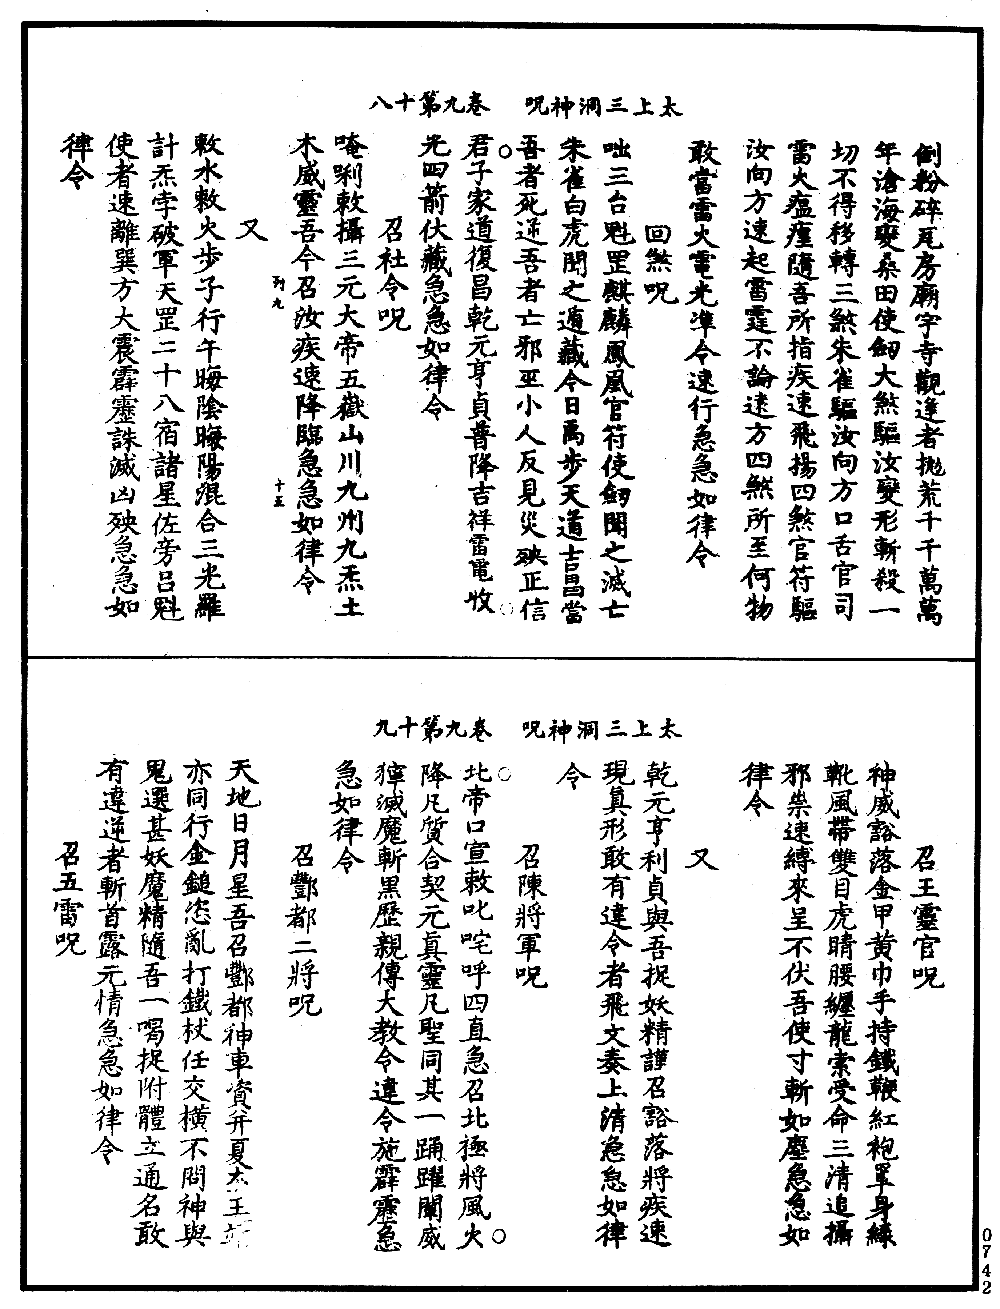 太上三洞神呪　卷九第十八
倒粉碎瓦房廟宇寺觀逢者拋荒千千萬萬
年滄海變桑田使劒大煞驅汝變形斬殺一
切不得移轉三煞朱雀驅汝向方口舌官司
雷火瘟㾏隨吾所指疾速飛揚四煞官符驅
汝向方速起雷霆不論遠方四煞所至何物
敢當雷火電光準令速行急急如律令
回煞呪
咄三台魁罡麒麟鳳凰官符使劒聞之滅亡
朱雀白虎聞之遁藏今日禹步天道吉昌當
吾者死逆吾者亡邪巫小人反見災殃正信
君子家道復昌乾元亨貞普降吉祥雷電收
光四箭伏藏急急如律令
召社令呪
唵唎敕攝三元大帝五嶽山川九州九炁土
木威靈吾今召汝疾速降臨急急如律令
列九
十五
又
敕水敕火步子行午晦陰晦陽混合三光羅
計炁孛破軍天罡二十八宿諸星佐旁呂魁
使者速離巽方大震霹靂誅滅凶殃急急如
律令
太上三洞神呪　卷九第十九
召王靈官呪
神威豁落金甲黃巾手持鐵鞭紅袍罩身綠
靴風帶雙目虎睛腰纏龍索受命三清追攝
邪祟速縛來呈不伏吾使寸斬如塵急急如
律令
又
乾元亨利貞與吾捉妖精謹召豁落將疾速
現眞形敢有違令者飛文奏上清急急如律
令
召陳將軍呪
北帝口宣敕叱咤呼四直急召北極將風火
降凡質合契元眞靈凡聖同其一踊躍闡威
獰滅魔斬黑歷親傳大教令違令施霹靂急
急如律令
召酆都二將呪
天地日月星吾召酆都神車資并夏
亦同行金鎚恣亂打鐵杖任交橫不問神與
鬼選甚妖魔精隨吾一喝捉附體立通名敢
有違逆者斬首露元情急急如律令
召五雷呪
0742